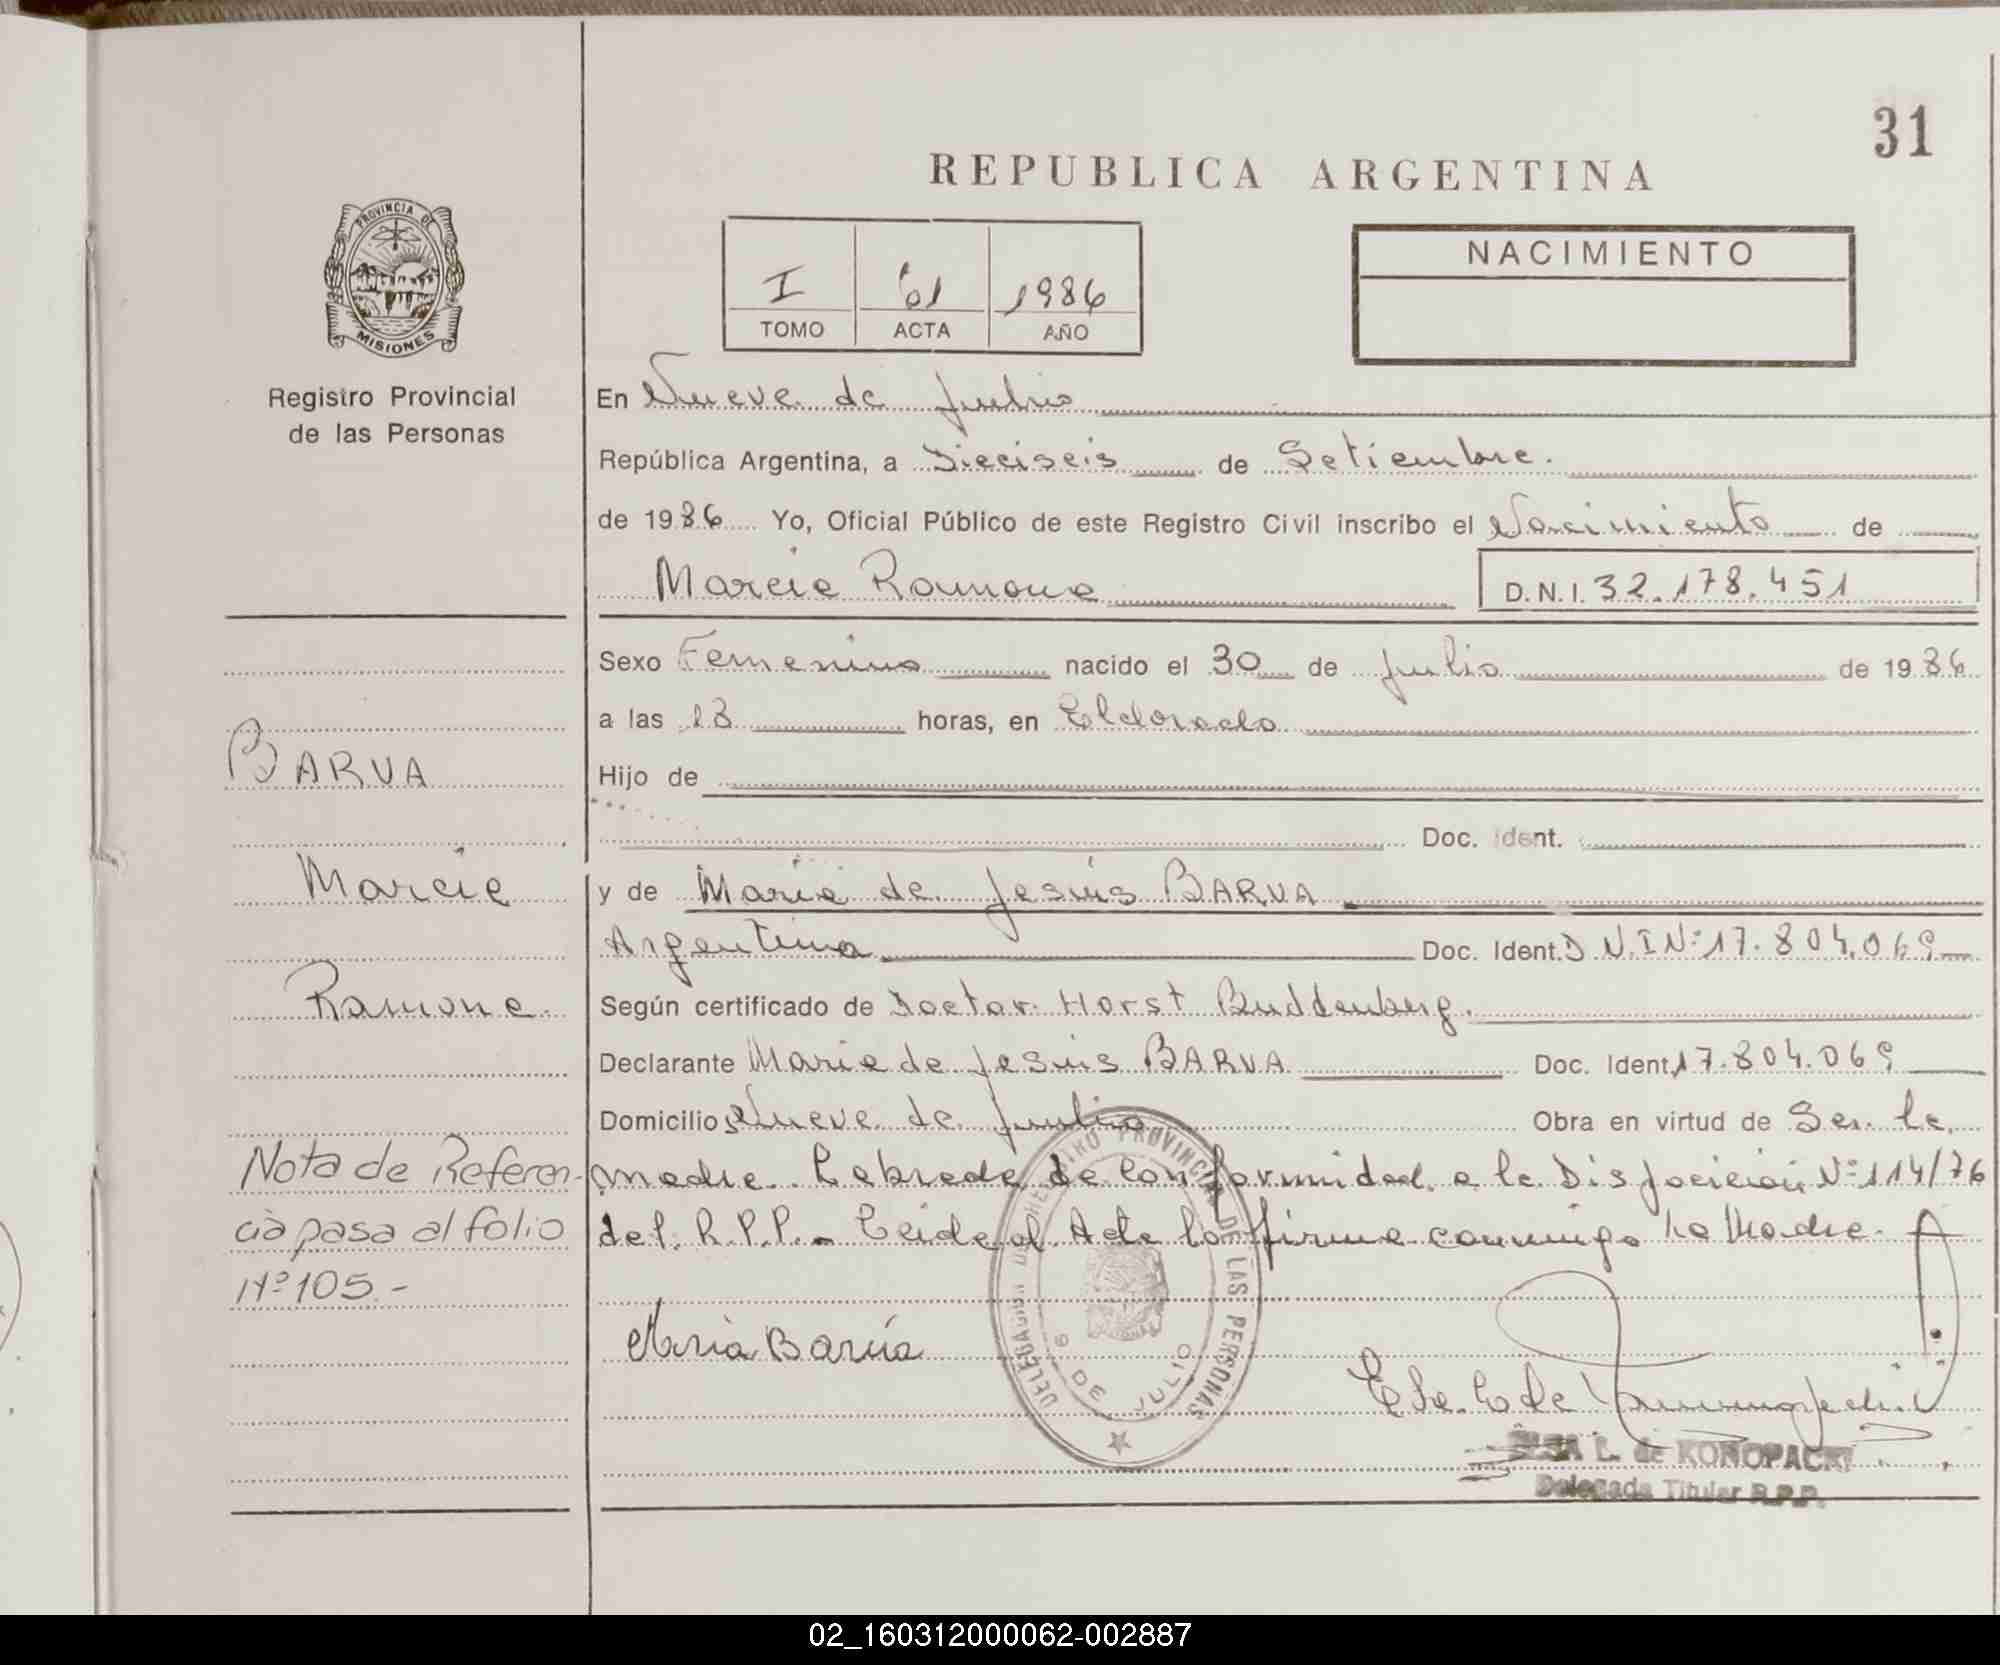 31
REPUBLICA ARGENTINA
PROVINCIA DE
MISIONES
Registro Provincial
de las Personas
I 61 1986
TOMO ACTA AÑO
NACIMIENTO
En Nueve de Julio
República Argentina, a Dieciseis de Setiembre.
de 1986 Yo, Oficial Público de este Registro Civil inscribo el Nacimiento de
Marcia Ramona D.N.I. 32.178.451
Sexo Femenino nacido el 30 de Julio de 1986
a las 13 horas, en Eldorado
Hijo de
Doc. Ident.
y de Maria de Jesús BARUA
Argentina Doc. Ident. D.N.I Nº 17.804.069
Según certificado de Doctor Horst Buddenberg.
Declarante Maria de Jesus BARUA Doc. Ident. 17.804.069
Domicilio Nueve de Julio Obra en virtud de Ser la
madre. Labrada de conformidad a la Disposición Nº 114/76
del R.P.P. - Leida el Acta la firma conmigo la Madre.
BARUA
Marcia
Ramona.
Nota de Referen-
cia pasa al folio
Nº 105.-
Maria Barúa
DELEGACION DEL REGISTRO PROVINCIAL DE LAS PERSONAS
9 DE JULIO
ELSA L. de KONOPACKI
Delegada Titular R.P.P.
02_160312000062-002887